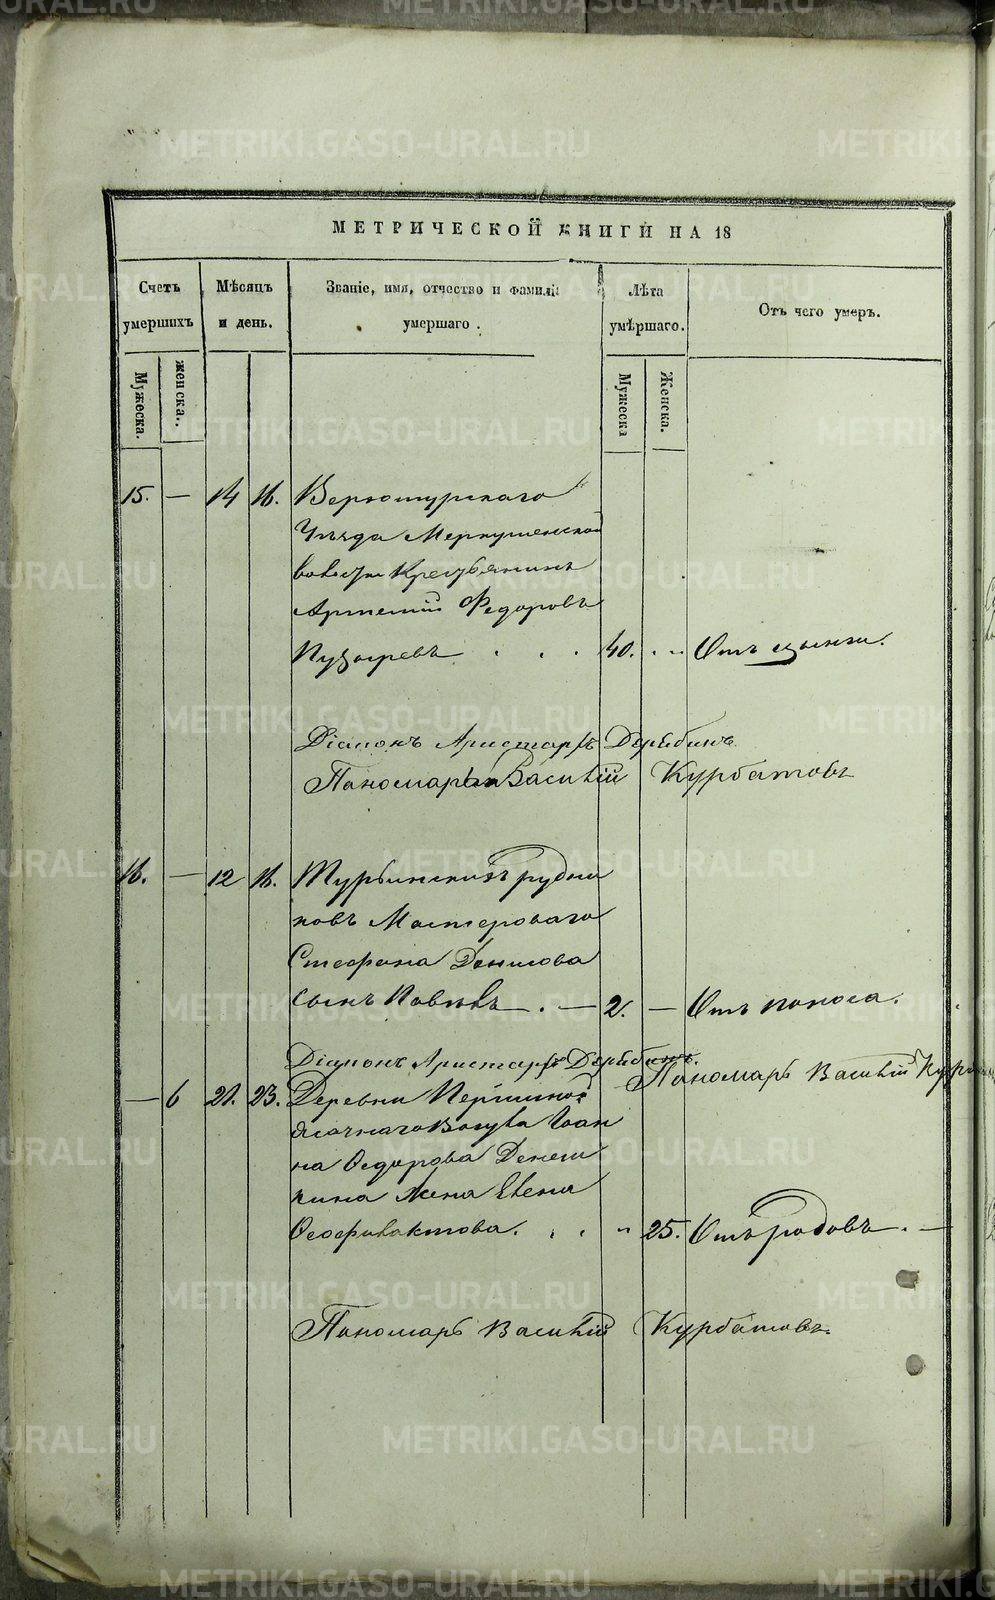 МЕТРИЧЕСКОЙ КНИГИ НА 18
Счетъ умершихъ
Мѣсяцъ и день.
Званіе, имя, отчество и фамилія умершаго.
Лѣта умѣршаго.
Отъ чего умеръ.
Мужеска.
женска.
Мужеска
Женска.
15. — 14 16. Верхотурскаго
Уѣзда Меркушенской
волости Крестьянинъ
Артемій Федоровъ
Пузыревъ 40. Отъ цынги.
Діаконъ Аристархъ Дерябинъ
Пономарь Василій Курбатовъ
16. — 12 16. Турьинскихъ рудни
ковъ Мастероваго
Стефана Денисова
Сынъ Павелъ. — 2. — Отъ поноса.
Діаконъ Аристархъ Дерябинъ.
Пономарь Василій
— 6 21. 23. Деревни Першиной
ясачнаго Вогула Іоан
на Ѳедорова Денеш
кина жена Елена
Ѳеофилактова. 25. Отъ родовъ. —
Пономарь Василій Курбатовъ.
METRIKI.GASO-URAL.RU